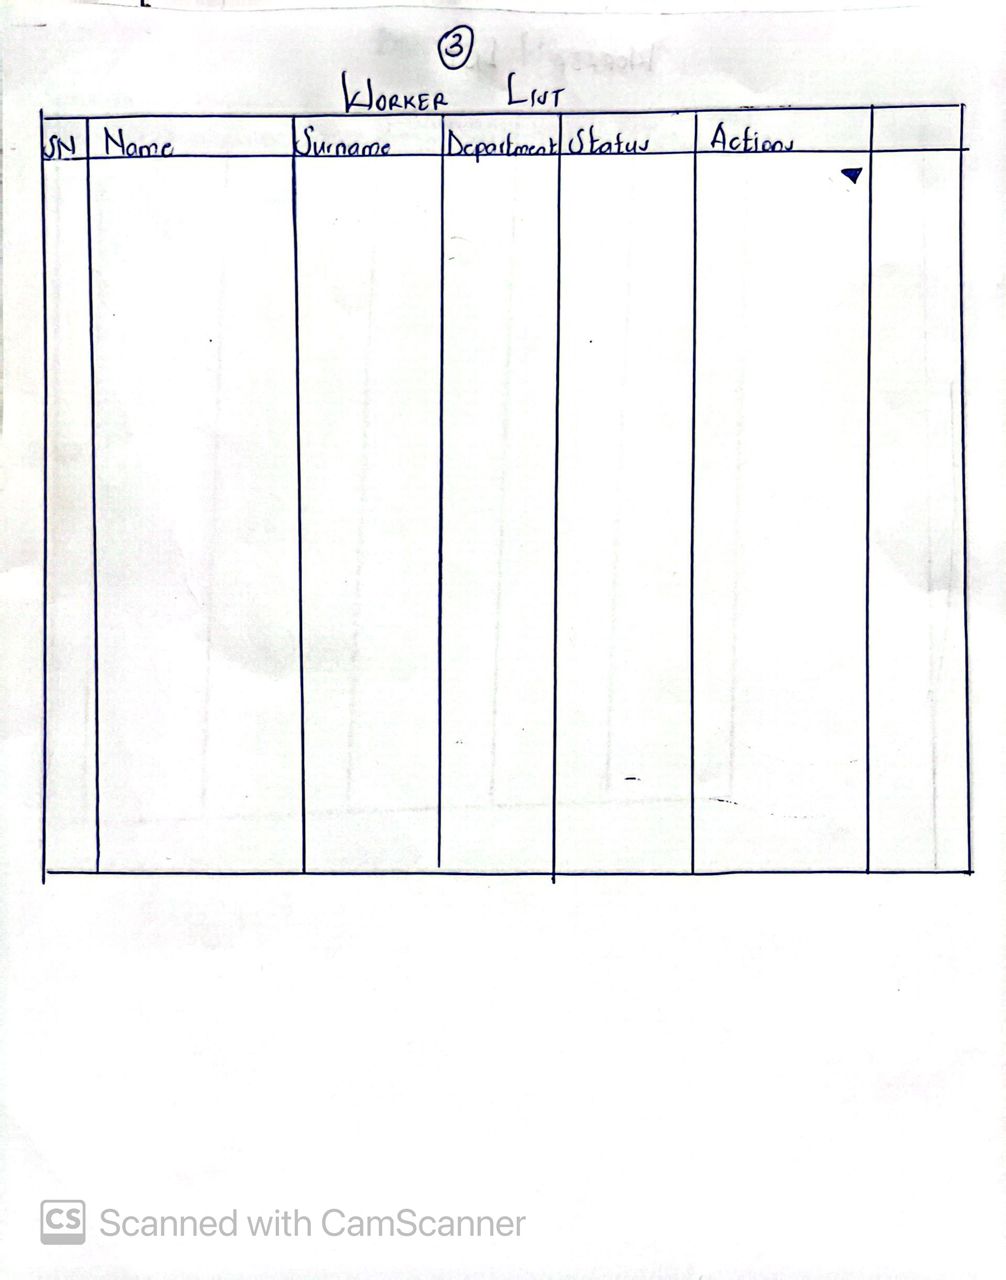 3
WORKER LIST
SN Name Surname Department Status Actions
CS Scanned with CamScanner